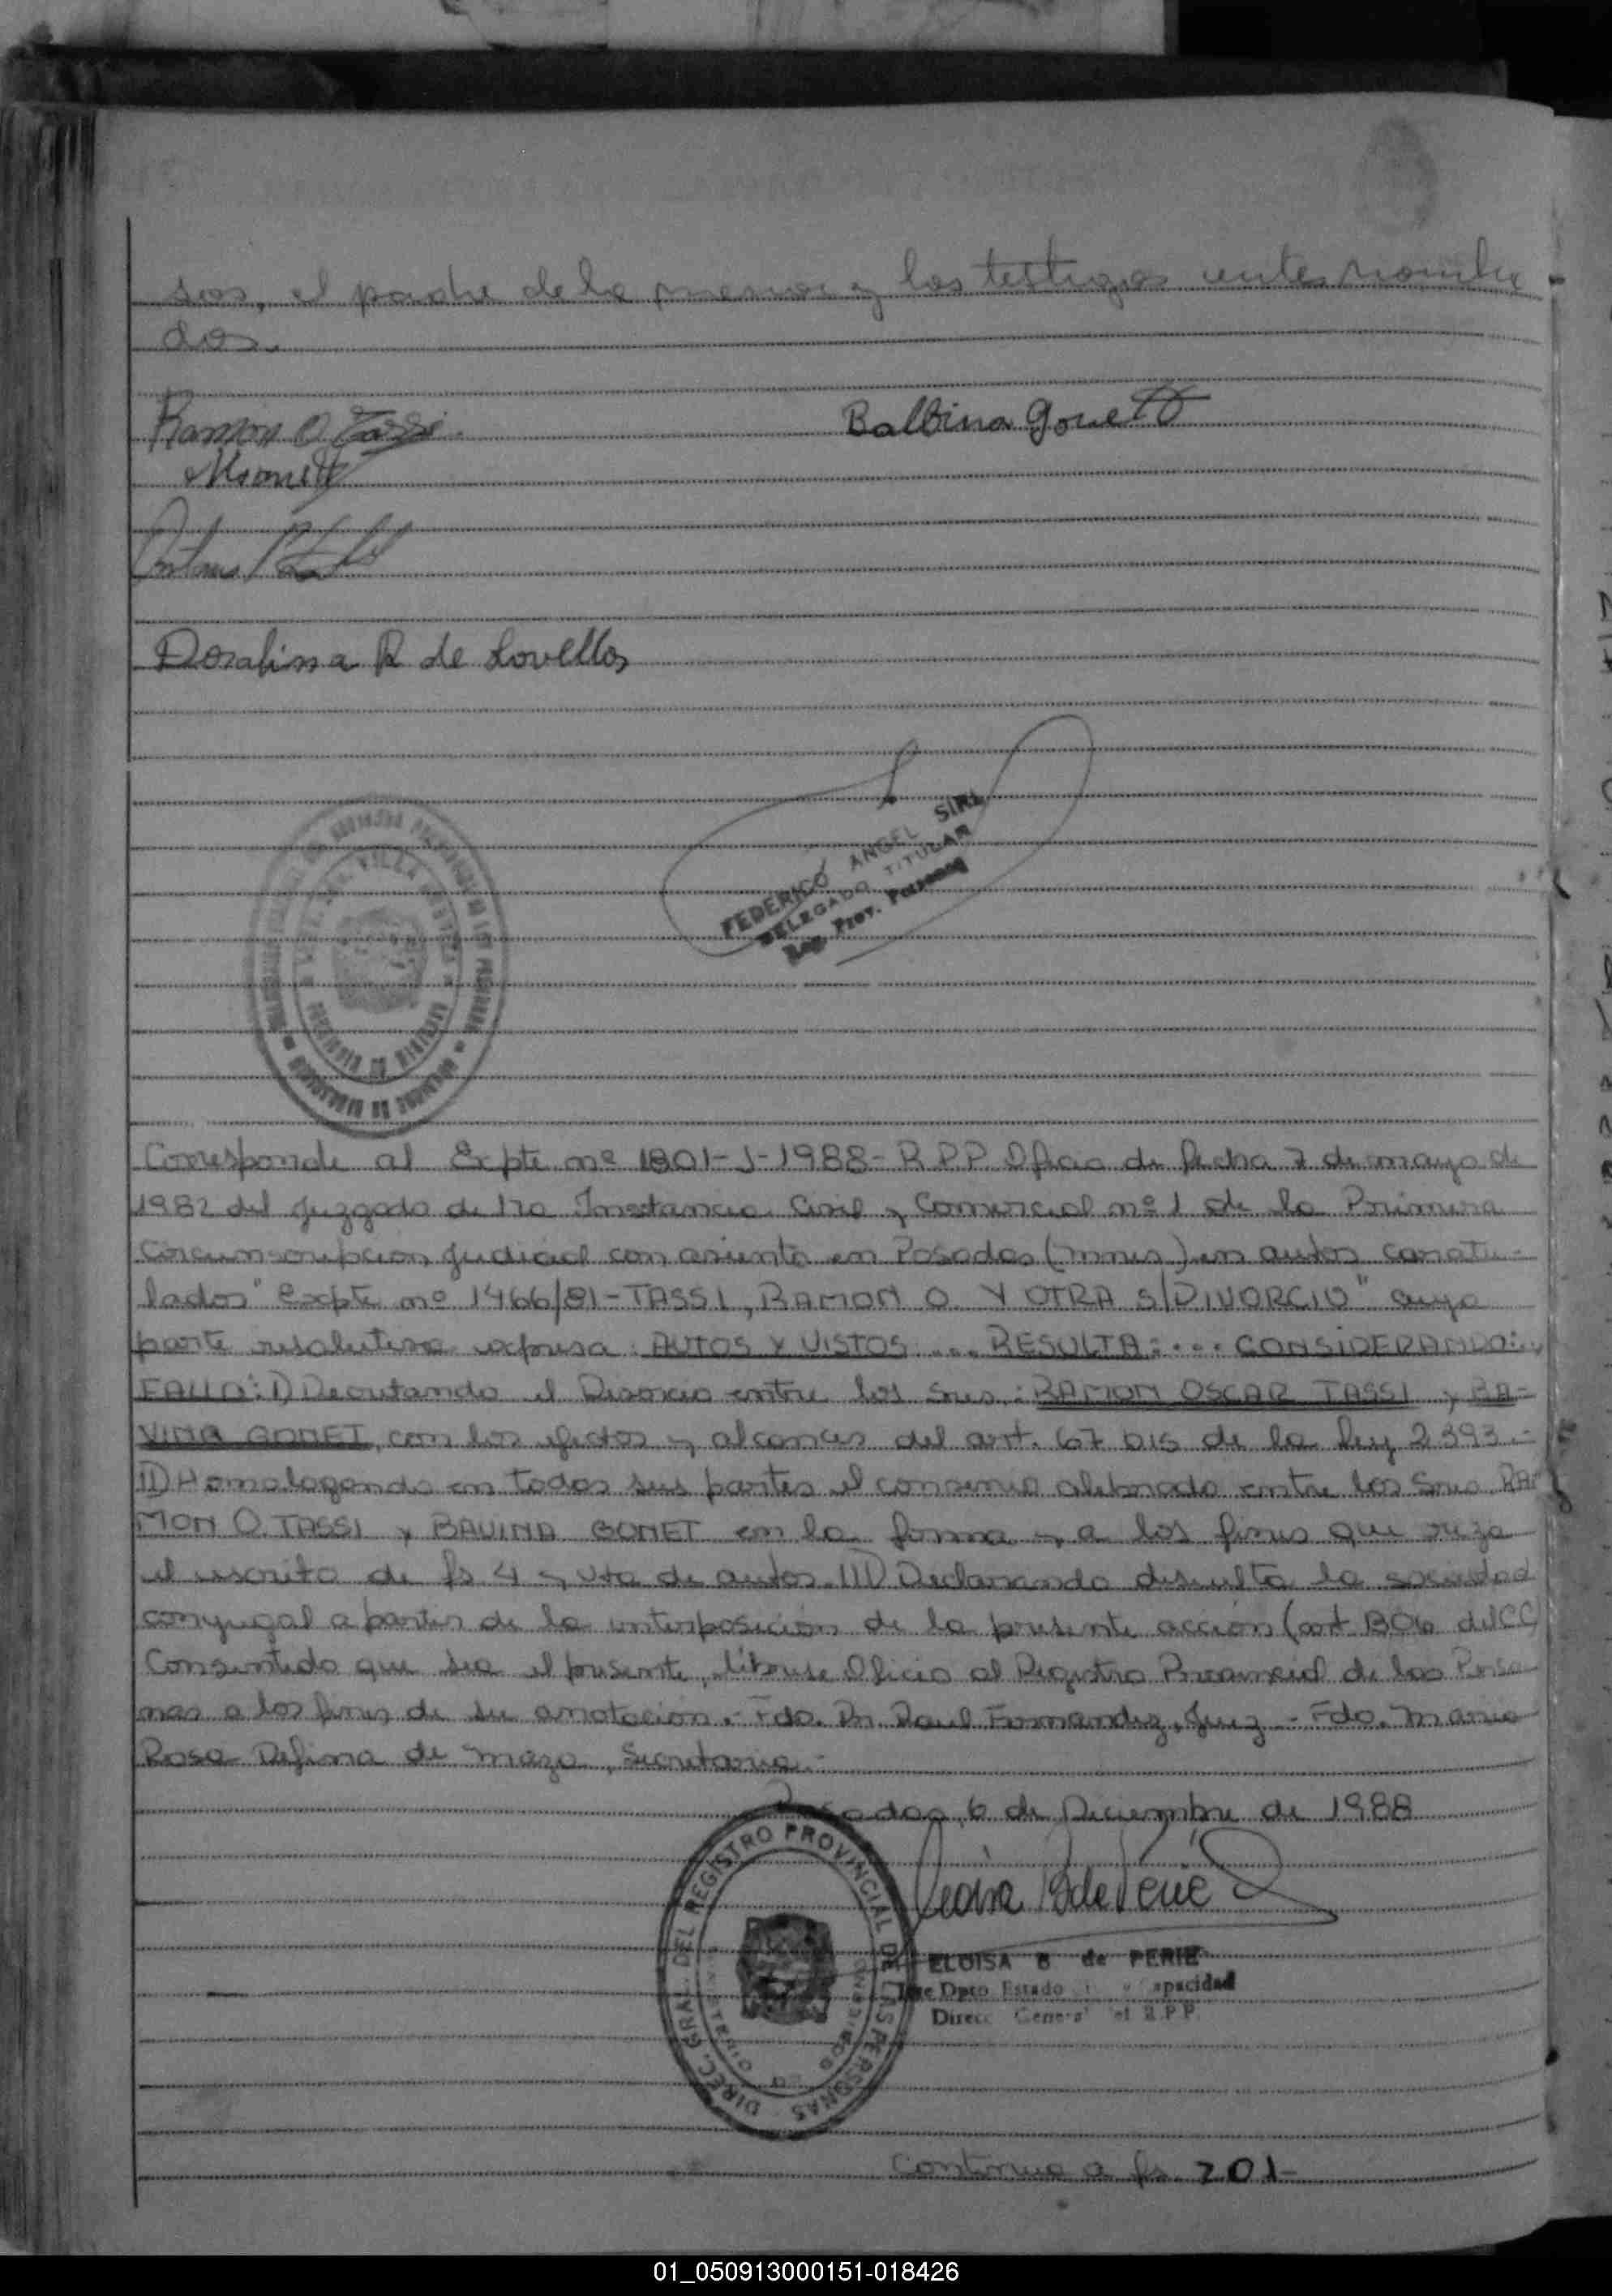 sos, el padre de la menor y los testigos antes nombra
dos.
Ramon O Tassi
Balbina Gonett
Doralina R de Lovellos
FEDERICO ANGEL SIRI
DELEGADO TITULAR
Reg. Prov. Personas
Corresponde al Expte nº 1801-J-1988- R.P.P. Oficio de fecha 7 de mayo de
1982 del Juzgado de 1ra Instancia Civil y Comercial nº 1 de la Primera
Circunscripcion Judicial con asiento en Posadas (mnes) en autos caratu-
lados "Expte nº 1466/81-TASSI, RAMON O. Y OTRA S/DIVORCIO" cuya
parte resolutiva expresa: AUTOS Y VISTOS ... RESULTA: ... CONSIDERANDO: ...
FALLO: I) Decretando el Divorcio entre los Sres.: RAMON OSCAR TASSI y BA-
VINA GONET, con los efectos y alcances del art. 67 bis de la Ley 2393.-
II) Homologando en todas sus partes el convenio celebrado entre los Sres. RA-
MON O. TASSI y BAVINA GONET en la forma y a los fines que reza
el escrito de fs 4 y vta de autos. III) Declarando disuelta la sociedad
conyugal a partir de la interposición de la presente acción (art. 1306 del CC)
Consentido que sea el presente, líbrese Oficio al Registro Provincial de las Perso
nas a los fines de su anotación.- Fdo. Dr. Raul Fernandez, Juez - Fdo. Maria
Rosa Defina de Mazo, Secretaria.-
Posadas, 6 de Diciembre de 1988
DIREC. GRAL. DEL REGISTRO PROVINCIAL DE LAS PERSONAS
ELOISA B de PERIE
Dpto Estado y Capacidad
Direcc General del R.P.P.
Continua a fs. 201-
01_050913000151-018426